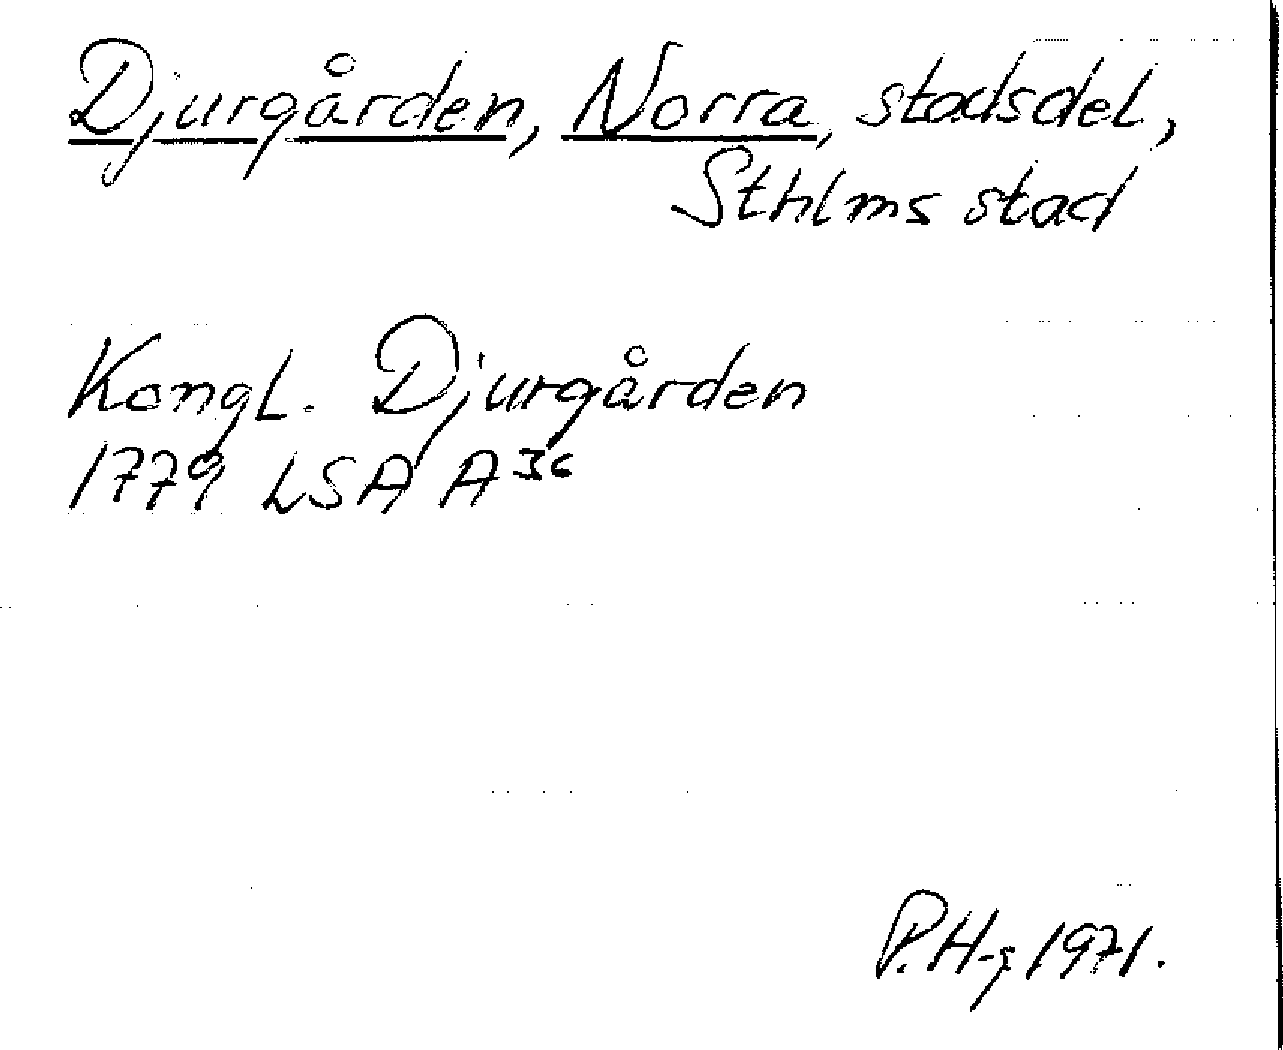 Djurgården, Norra, stadsdel,
Sthlms stad
Kongl. Djurgården
1779 LSA A³⁶
P.H-g 1971.